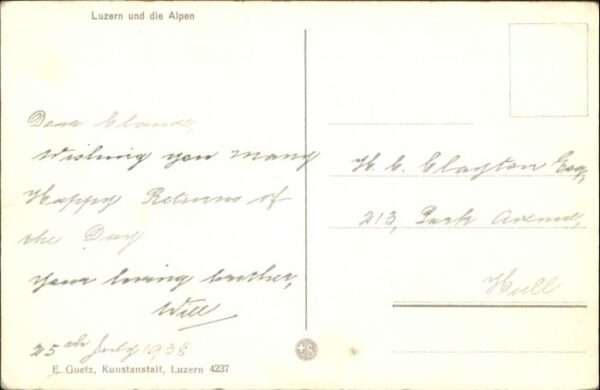 Luzern und die Alpen
Dear Claude,
Wishing you many
Happy Returns of
the Day
Your loving brother,
Will
25th July 1938
H. C. Clayton Esq,
213, Park Avenue,
Hull
E. Goetz, Kunstanstalt, Luzern 4237